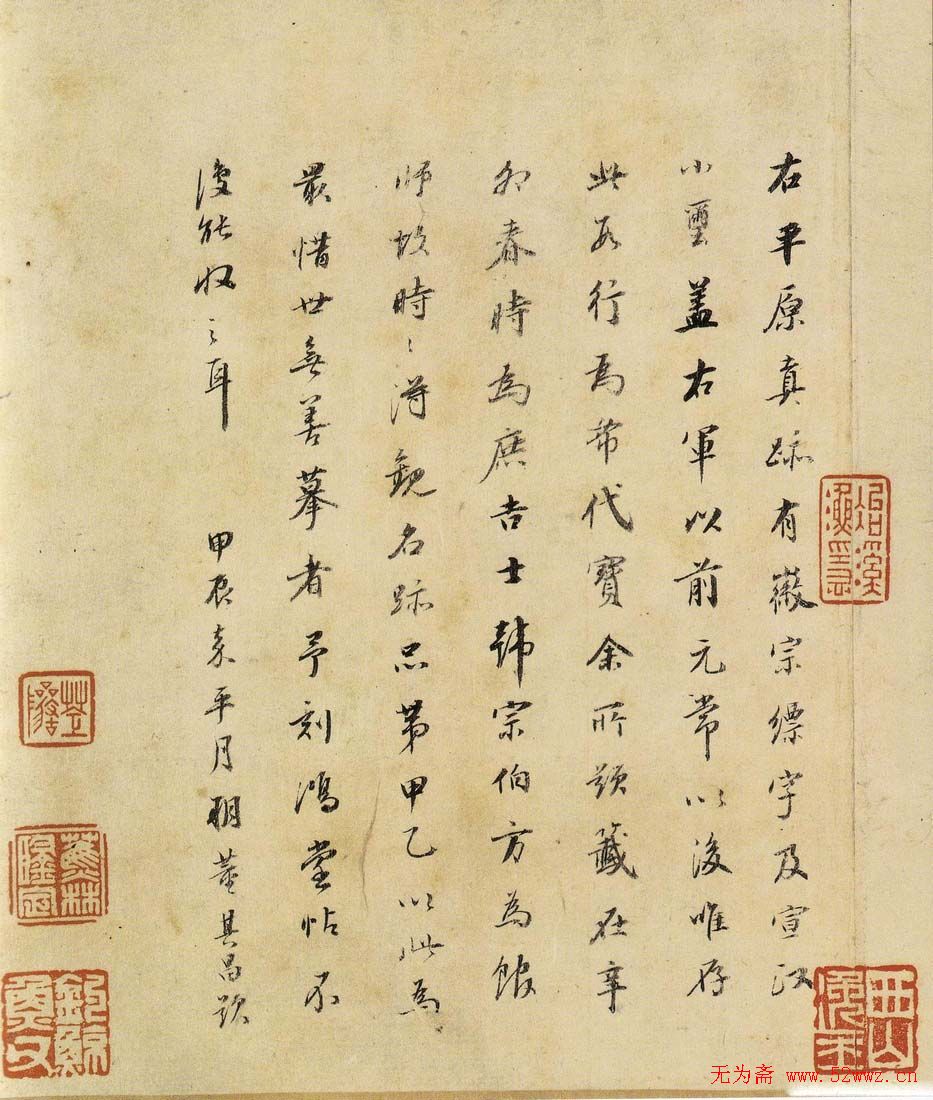 右平原真跡有徽宗縹字及宣政
小璽蓋右軍以前元常以後唯存
此數行為希代寶余所題籤在辛
卯春時為庶吉士韓宗伯方為館
師故時〻得觀名跡品第甲乙以此為
最惜世無善摹者予刻鴻堂帖不
復能收之耳 甲辰嘉平月朔董其昌題
无为斋 www.52wwz.cn